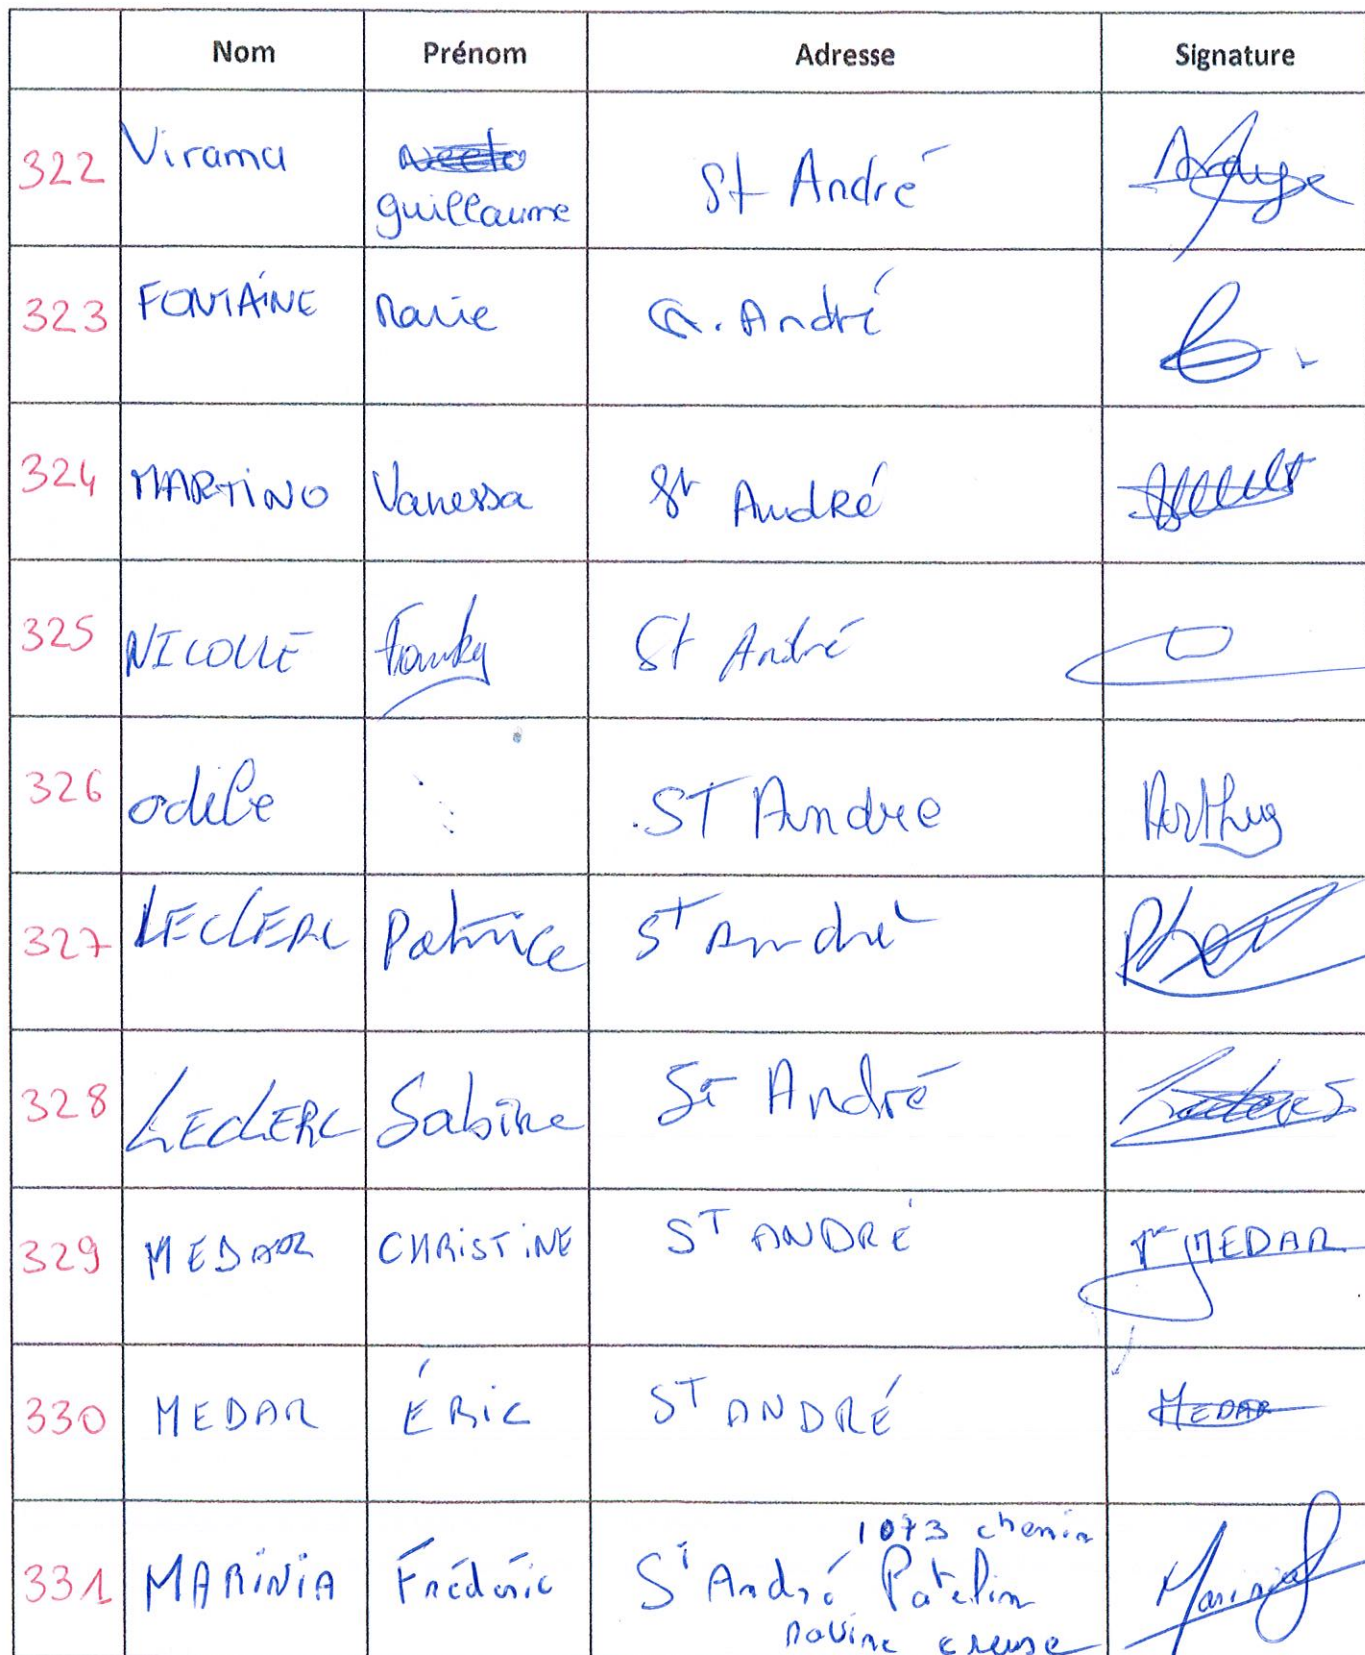 Nom Prénom Adresse Signature
322 Virama guillaume St André
323 FONTAINE Marie St. André
324 MARTINO Vanessa St André
325 NICOLLE St André
326 odile ST Andre
327 LECLERC Patrice St André
328 LECLERC Sabine St André
329 MEDAR CHRISTINE ST ANDRÉ MEDAR
330 MEDAR ÉRIC ST ANDRÉ MEDAR
331 MARINIA Frédéric 1073 chemin
St André Patelin
Ravine creuse